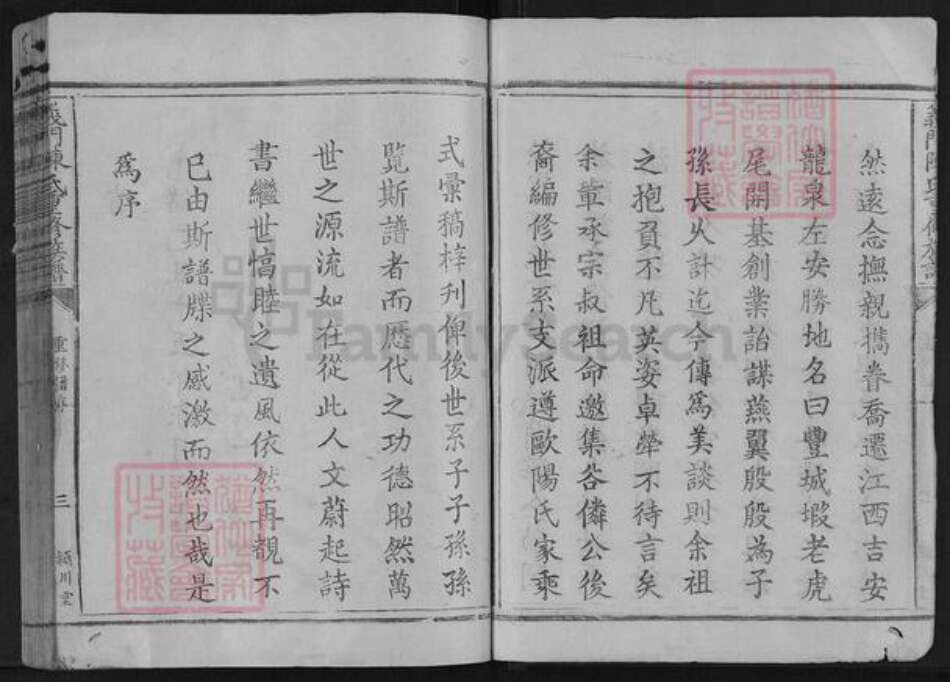 然遠念撫親攜眷喬遷江西吉安
龍泉左安勝地名曰豐城塅老虎
尾開基創業詒謀燕翼殷殷為子
孫長久計迄今傳爲美談則余祖
之抱負不凡英姿卓犖不待言矣
余輩承宗叔祖命邀集各儔公後
裔編修世系支派遵歐陽氏家乘
式彙稿梓刊俾後世系子子孫孫
覽斯譜者而歷代之功德昭然萬
世之源流如在從此人文蔚起詩
書繼世惇睦之遺風依然再覩不
已由斯譜牒之感激而然也哉是
爲序
義門陳氏
重修譜序
三
潁川堂
FamilySearch